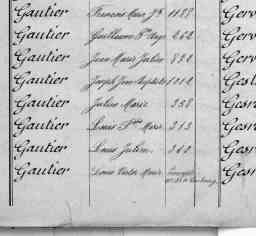 Gautier François Marie Jh 1188 Gerv
Gautier Guillaume Pre 262 Gerv
Gautier Jean Marie Julien 892 Gerv
Gautier Joseph Jean Baptiste 1012 Gest
Gautier Julien Marie 358 Gesr
Gautier Louis Marie 313 Gesr
Gautier Louis Julien 360 Gesr
Gautier Louis Victor Marie Gesr